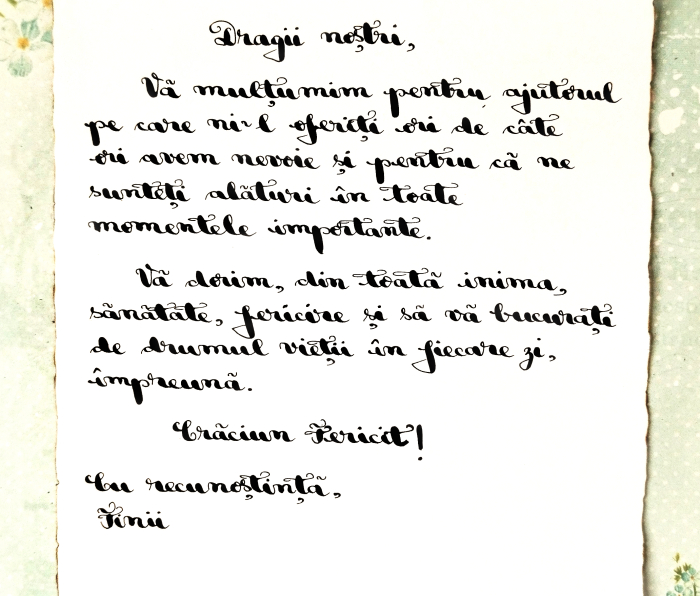 Dragii noștri,
Vă mulțumim pentru ajutorul
pe care ni-l oferiți ori de câte
ori avem nevoie și pentru că ne
sunteți alături în toate
momentele importante.
Vă dorim, din toată inima,
sănătate, fericire și să vă bucurați
de drumul vieții în fiecare zi,
împreună.
Crăciun Fericit!
Cu recunoștință,
Finii